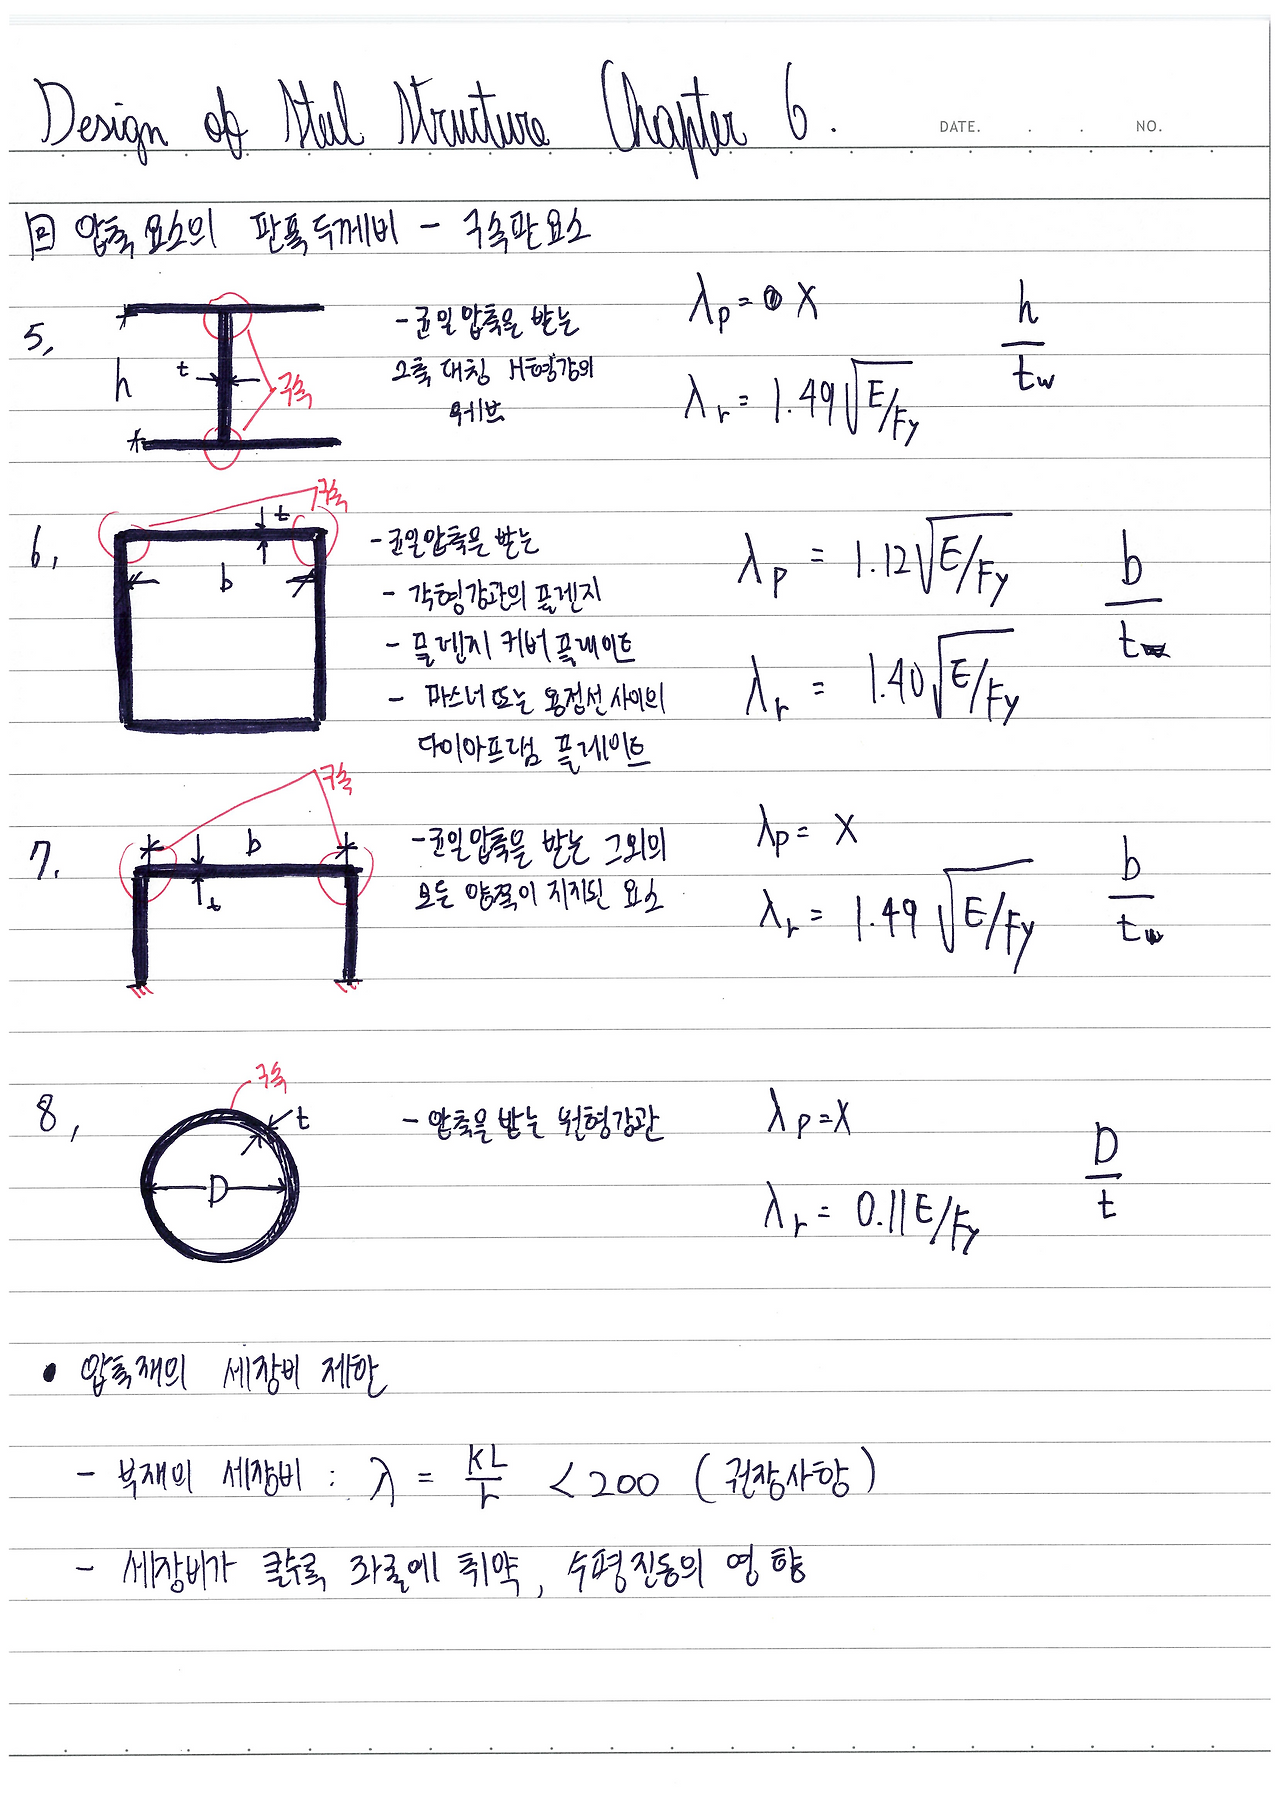 Design of Steel Structure Chapter 6.
DATE. . . NO.
回 압축요소의 판폭두께비 - 구속판요소
5, h t 구속
- 균일압축을 받는
2축 대칭 H형강의
웨브
λp = X
λr = 1.49√E/Fy
h/tw
6, 구속 t b
- 균일압축을 받는
- 각형강관의 플렌지
- 플렌지 커버 플레이트
- 파스너 또는 용접선 사이의
다이아프램 플레이트
λp = 1.12√E/Fy
λr = 1.40√E/Fy
b/t
7. 구속 b t
- 균일압축을 받는 그외의
모든 양쪽이 지지된 요소
λp = X
λr = 1.49√E/Fy
b/t
8, 구속 t D
- 압축을 받는 원형강관
λp = X
λr = 0.11E/Fy
D/t
• 압축재의 세장비 제한
- 부재의 세장비 : λ = KL/r < 200 (권장사항)
- 세장비가 클수록 좌굴에 취약, 수평진동의 영향